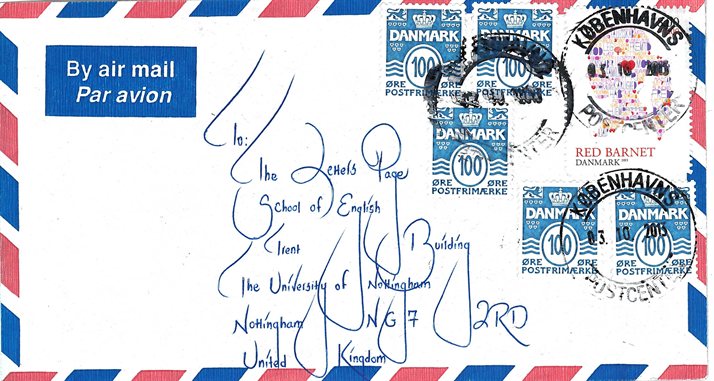 By air mail
Par avion
DANMARK
100
ØRE ØRE
POSTFRIMÆRKE
DANMARK
100
ØRE ØRE
POSTFRIMÆRKE
KØBENHAVNS
03. 10 2013
POSTCENTER
KØBENHAVNS
POSTCENTER
RED BARNET
DANMARK
DANMARK
100
ØRE ØRE
POSTFRIMÆRKE
KØBENHAVNS
03. 10 2013
POSTCENTER
DANMARK
100
ØRE ØRE
POSTFRIMÆRKE
DANMARK
100
ØRE ØRE
POSTFRIMÆRKE
To:
The Letters Page
School of English
Trent Building
The University of Nottingham
Nottingham NG7 2RD
United Kingdom